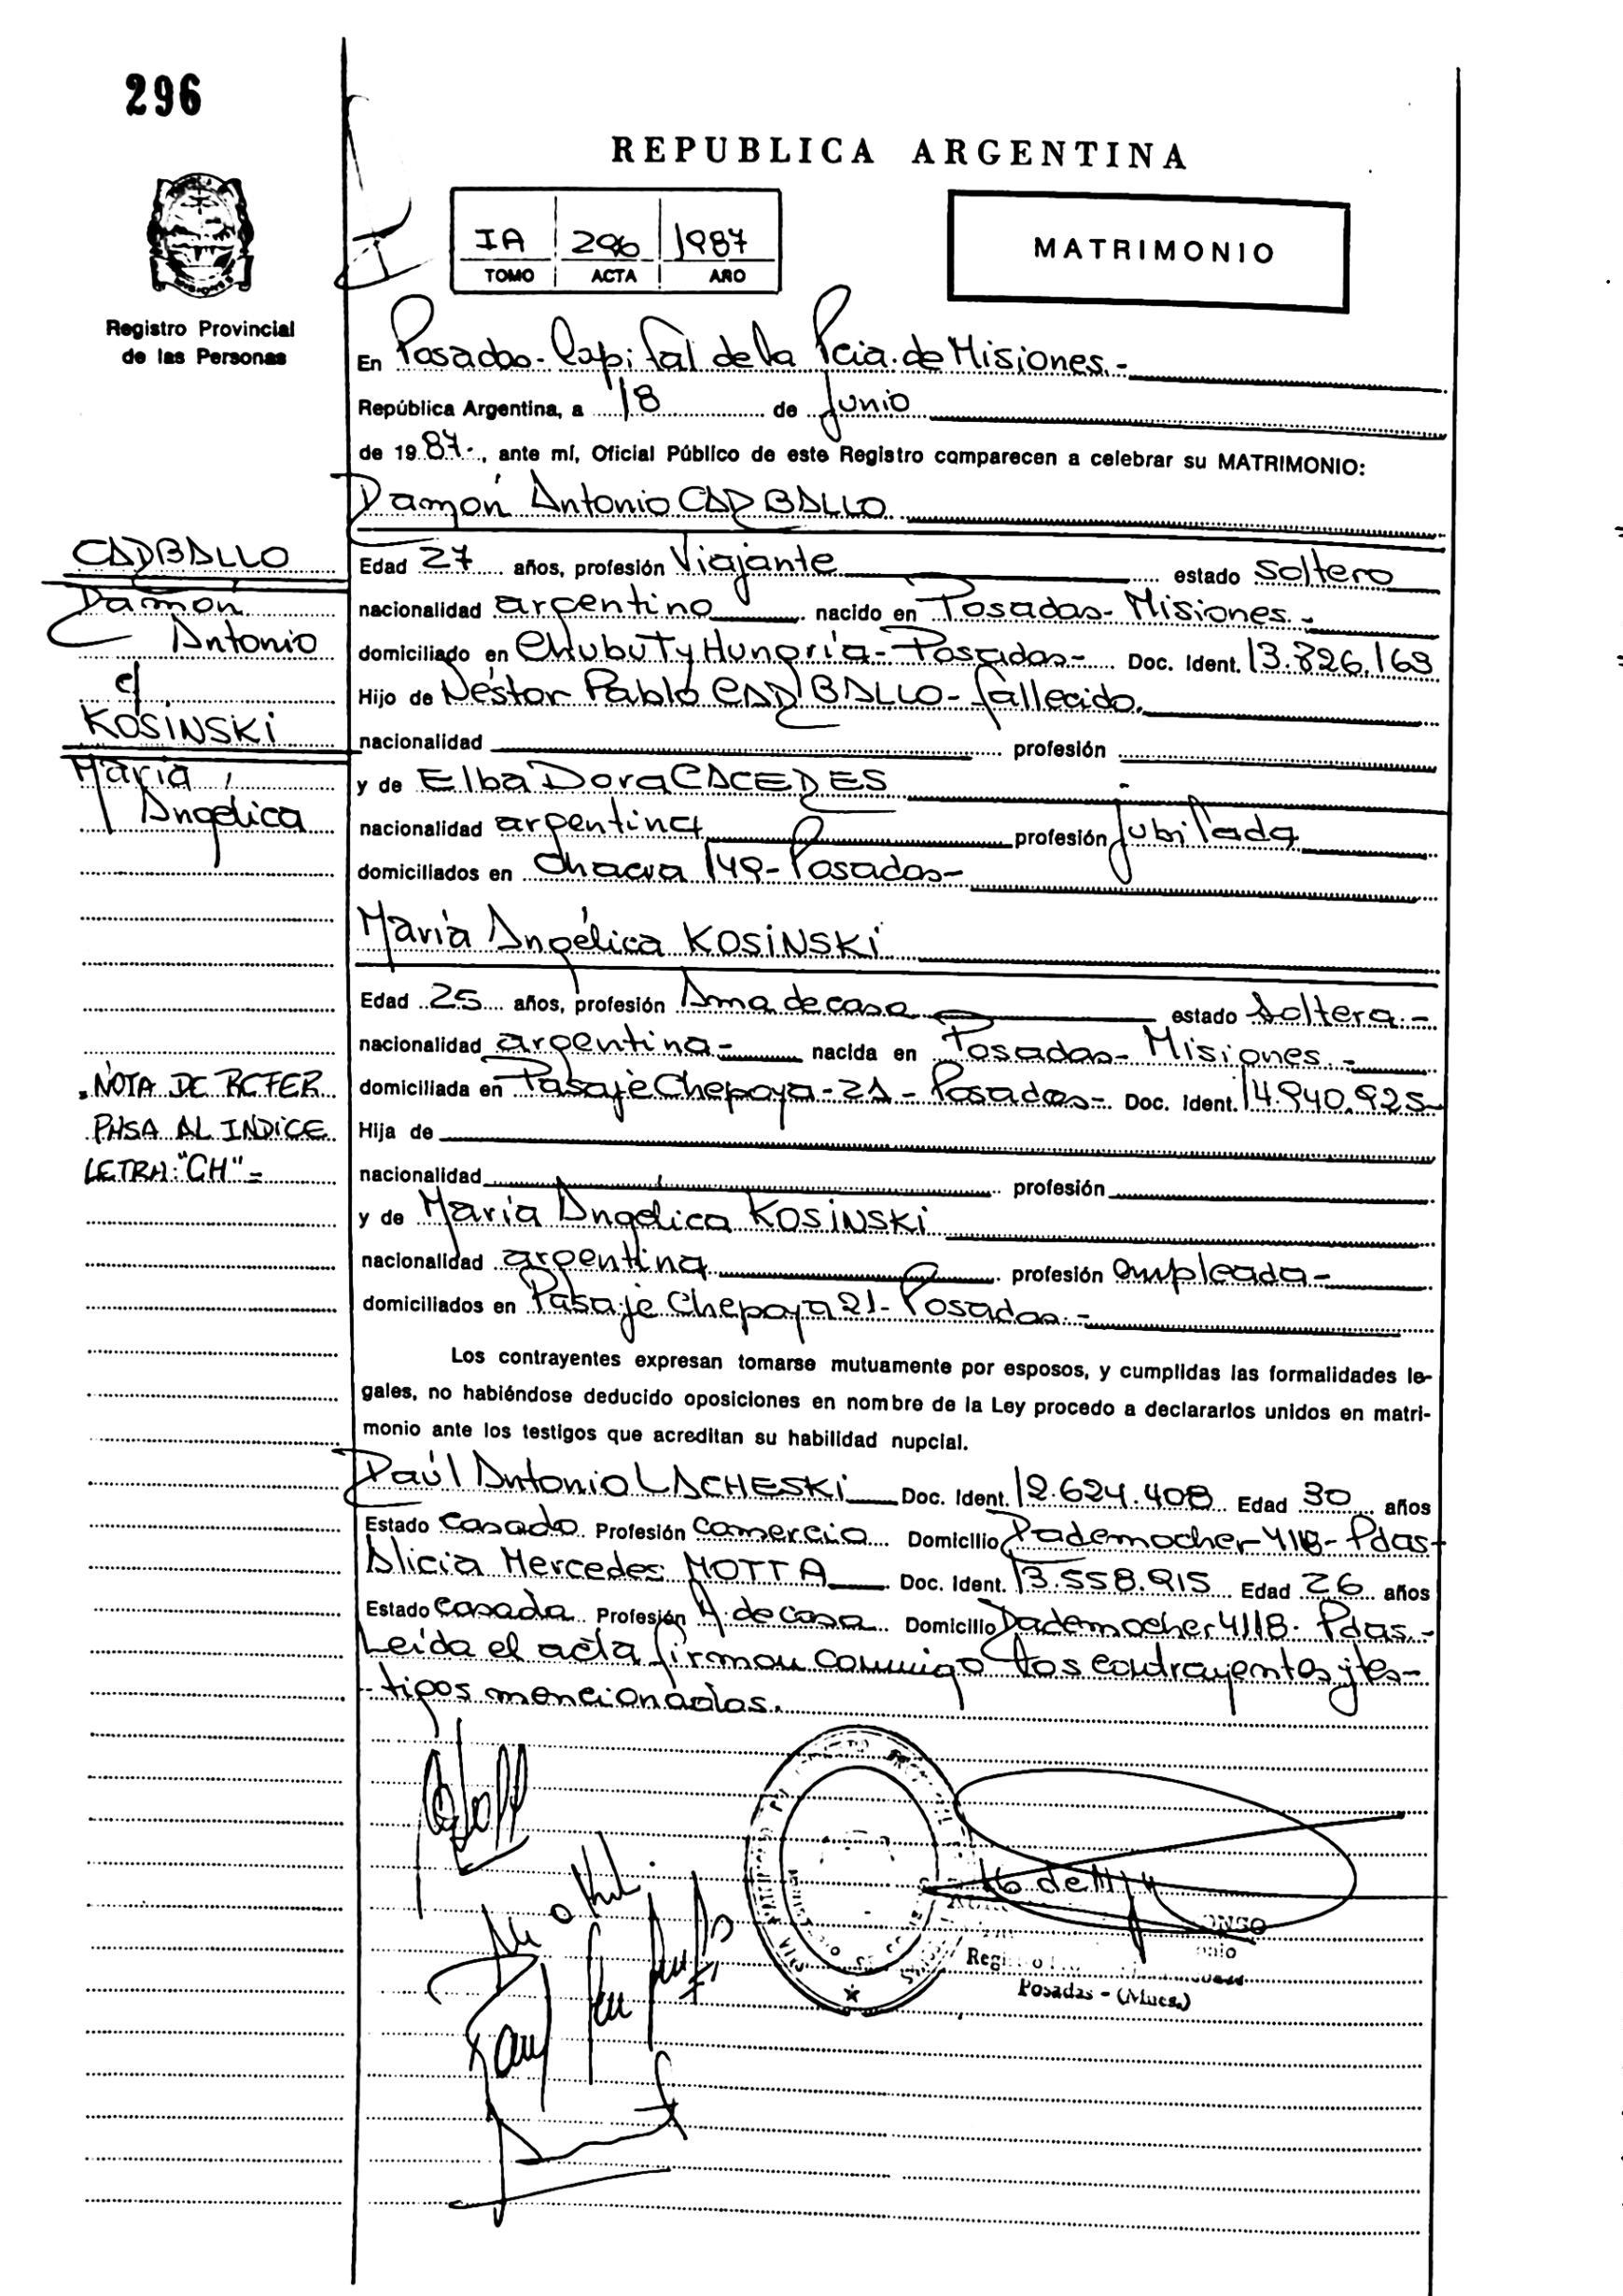 296
REPUBLICA ARGENTINA
IA 296 1987
TOMO ACTA AÑO
MATRIMONIO
Registro Provincial
de las Personas
En Posadas-Capital de la Pcia. de Misiones.-
República Argentina, a 18 de Junio
de 1987., ante mí, Oficial Público de este Registro comparecen a celebrar su MATRIMONIO:
Ramón Antonio CARBALLO
CARBALLO
Ramón
Antonio
c/
KOSINSKI
María
Angélica
Edad 27 años, profesión Viajante estado soltero
nacionalidad argentino nacido en Posadas-Misiones.-
domiciliado en Chubut y Hungría-Posadas- Doc. Ident. 13.826.169
Hijo de Néstor Pablo CARBALLO-fallecido.
nacionalidad profesión
y de Elba Dora CACERES
nacionalidad argentina profesión Jubilada
domiciliados en Chacra 149-Posadas-
María Angélica KOSINSKI
Edad 25 años, profesión Ama de casa estado soltera.-
nacionalidad argentina- nacida en Posadas-Misiones.-
domiciliada en Pasaje Chepoya-21-Posadas- Doc. Ident. 14.940.925-
Hija de
nacionalidad profesión
y de María Angélica KOSINSKI
nacionalidad argentina profesión empleada-
domiciliados en Pasaje Chepoya 21-Posadas.-
NOTA DE REFER
PASA AL INDICE
LETRA: "CH"=
Los contrayentes expresan tomarse mutuamente por esposos, y cumplidas las formalidades le-
gales, no habiéndose deducido oposiciones en nombre de la Ley procedo a declararlos unidos en matri-
monio ante los testigos que acreditan su habilidad nupcial.
Raúl Antonio LACHESKI Doc. Ident. 12.624.408 Edad 30 años
Estado casado Profesión comercio Domicilio Rademacher 4118-Pdas-
Alicia Mercedes MOTTA Doc. Ident. 13.558.915 Edad 26 años
Estado casada Profesión A. de casa Domicilio Rademacher 4118. Pdas.-
Leída el acta firman conmigo los contrayentes y tes-
-tigos mencionados.
Posadas - (Mnes.)